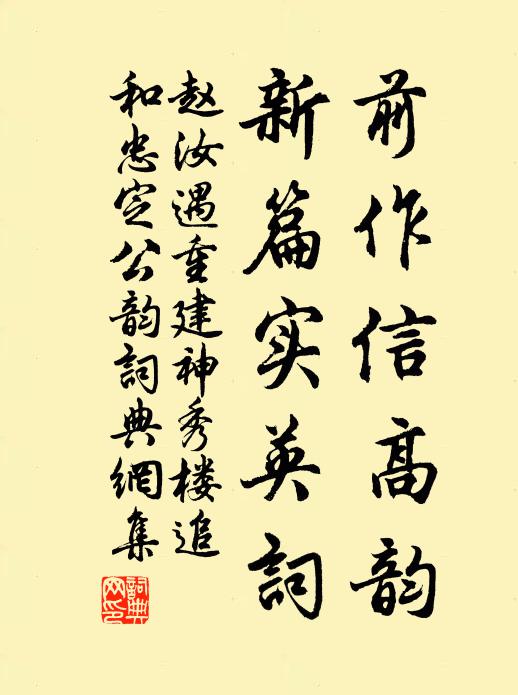 前作信高韵
新篇实英詞
赵汝遇重建神秀楼追
和忠定公韵詞典網集
詞典网印